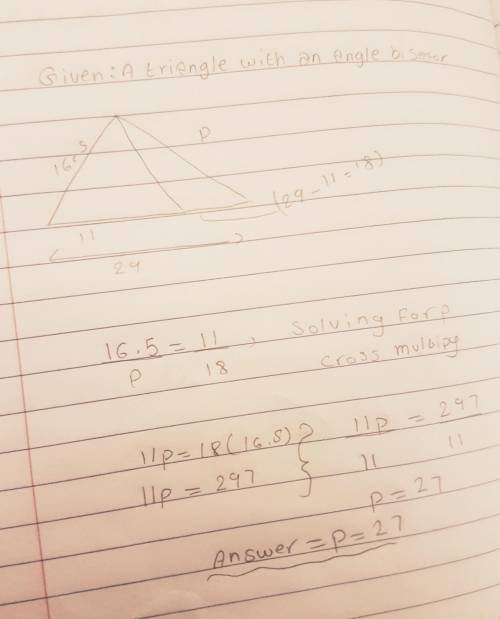 Given: A triangle with an angle bisector
16.5
P
(29-11=18)
11
29
16.5 = 11 , Solving for p
P 18 cross mulbipy
11p = 18(16.5) } 11p = 297
11p = 297 11 11
p = 27
Answer = p = 27